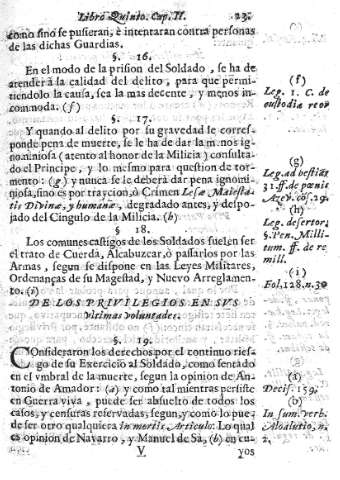 Libro Quinto. Cap. II. 23.
como sino se pusieran, è intentaran contra personas
de las dichas Guardias.
§. 16.
En el modo de la prision del Soldado, se ha de
atender à la calidad del delito; para que permi-
tiendolo la causa, sea la mas decente, y menos in-
commoda. (f)
§. 17.
Y quando al delito por su gravedad le corres-
ponde pena de muerte, se le ha de dar la menos ig-
nominiosa (atento al honor de la Milicia) consulta-
do el Principe, y lo mesmo para question de tor-
mento: (g) y nunca se le deberà dar pena ignomi-
niosa, sino es por traycion, ò Crimen Lesæ Maiesta-
tis Divinæ, y humanæ, degradado antes, y despo-
jado del Cingulo de la Milicia. (h)
§. 18.
Los comunes castigos de los Soldados suelen ser
el trato de Cuerda, Alcabuzear, ò passarlos por las
Armas, segun se dispone en las Leyes Militares,
Ordenanças de su Magestad, y Nuevo Arreglamen-
to. (i)
DE LOS PRIVILEGIOS EN SVS
vltimas voluntades.
§. 19.
COnsideraron los derechos por el continuo ries-
go de su Exercicio al Soldado, como sentado
en el vmbral de la muerte, segun la opinion de An-
tonio de Amador: (a) y como tal mientras persiste
en Guerra viva, puede ser absuelto de todos los
casos, y censuras reservadas, segun, y como lo pue-
de ser otro qualquiera in mortis Articulo. Lo qual
es opinion de Navarro, y Manuel de Sà, (b) en cu-
V yos
(f)
Leg. 1. C. de
custodia reor
(g)
Leg. ad bestias
31. ff. de pœnit
Azev. cõs. 19.
(h)
Leg. desertor,
§. Pen. Milli-
tum. ff. de re
mill.
(i)
Fol. 128. n. 30
(a)
Decis. 159.
(b)
In sum. verb.
Absolutio, n.
2.